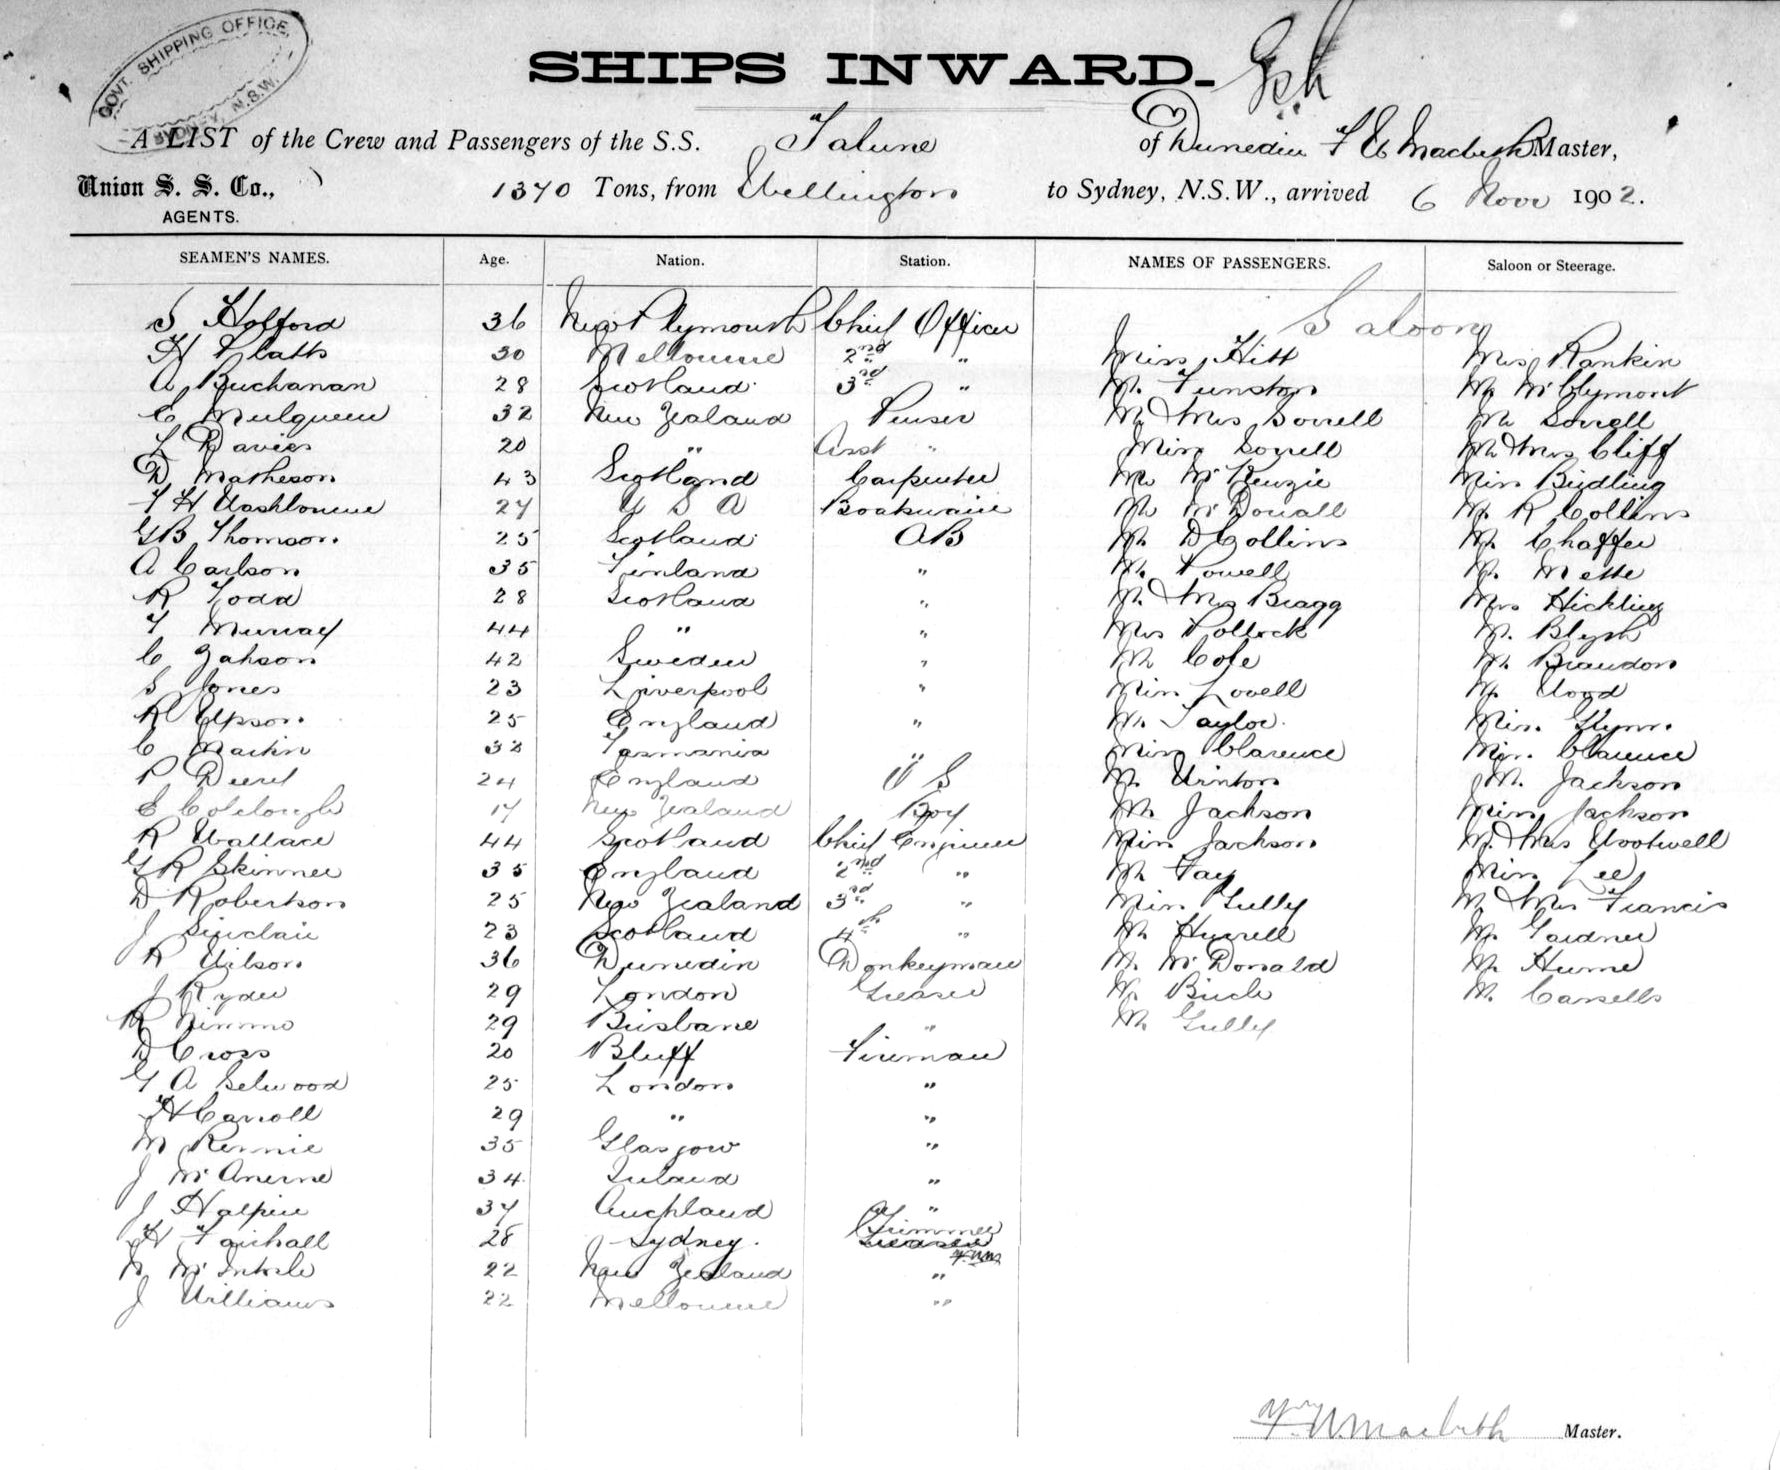 GOVT. SHIPPING OFFICE
SYDNEY, N.S.W.
SHIPS INWARD.
A LIST of the Crew and Passengers of the S.S. Talune of Dunedin Macbeth Master,
Union S. S. Co., 1370 Tons, from Wellington to Sydney, N.S.W., arrived 6 Novr 1902.
AGENTS.
SEAMEN'S NAMES. Age. Nation. Station. NAMES OF PASSENGERS. Saloon or Steerage.
Saloon
S Holford 36 New Plymouth Chief Officer
H Platts 30 Melbourne 2nd " Miss Hitt Mrs Rankin
A Buchanan 28 Scotland 3rd " Mr Funston Mr McClymont
C Mulqueen 32 New Zealand Purser Mr & Mrs Sorrell Mr Sorrell
L Davies 20 " Asst " Miss Sorrell Mr & Mrs Cliff
D Matheson 43 Scotland Carpenter Mr McKenzie Miss Birdling
F H Washbourne 27 U S A Boatswain Mr McDouall Mr R Collins
G B Thomson 25 Scotland AB Mr D Collins Mr Chaffer
A Carlson 35 Finland " Mr Powell Mr Mette
R Todd 28 Scotland " Mr & Mrs Bragg Mrs Hickling
F Murray 44 " " Mrs Pollock Mr
C 42 Sweden " Mr Cole Mr Brandon
S Jones 23 Liverpool " Miss Lovell Mr Wood
R Epson 25 England " Mr Taylor Miss Glynn
C Martin 32 Tasmania " Miss Clarence Miss Clarence
P 24 England O S Mr Winton Mr Jackson
E Colclough 17 New Zealand Boy Mr Jackson Miss Jackson
R Wallace 44 Scotland Chief Engineer Miss Jackson Mr & Mrs Wootwell
G R Skinner 35 England 2nd " Mr Fay Miss Lee
D Robertson 25 New Zealand 3rd " Miss Gully Mr & Mrs Francis
J Sinclair 23 Scotland 4th " Mr Hurrell Mr Gardner
R Wilson 36 Dunedin Donkeyman Mr McDonald Mr Hume
J Ryder 29 London Greaser Mr Birch Mr Cassells
R Nimmo 29 Brisbane " Mr Gully
D Cross 20 Bluff Fireman
G A Selwood 25 London "
H Carroll 29 " "
M Rennie 35 Glasgow "
J McAnerne 34 Ireland "
J Halpin 37 Auckland "
H Fairhall 28 Sydney. Trimmer
N 22 New Zealand "
J Williams 22 Melbourne "
Macbeth Master.